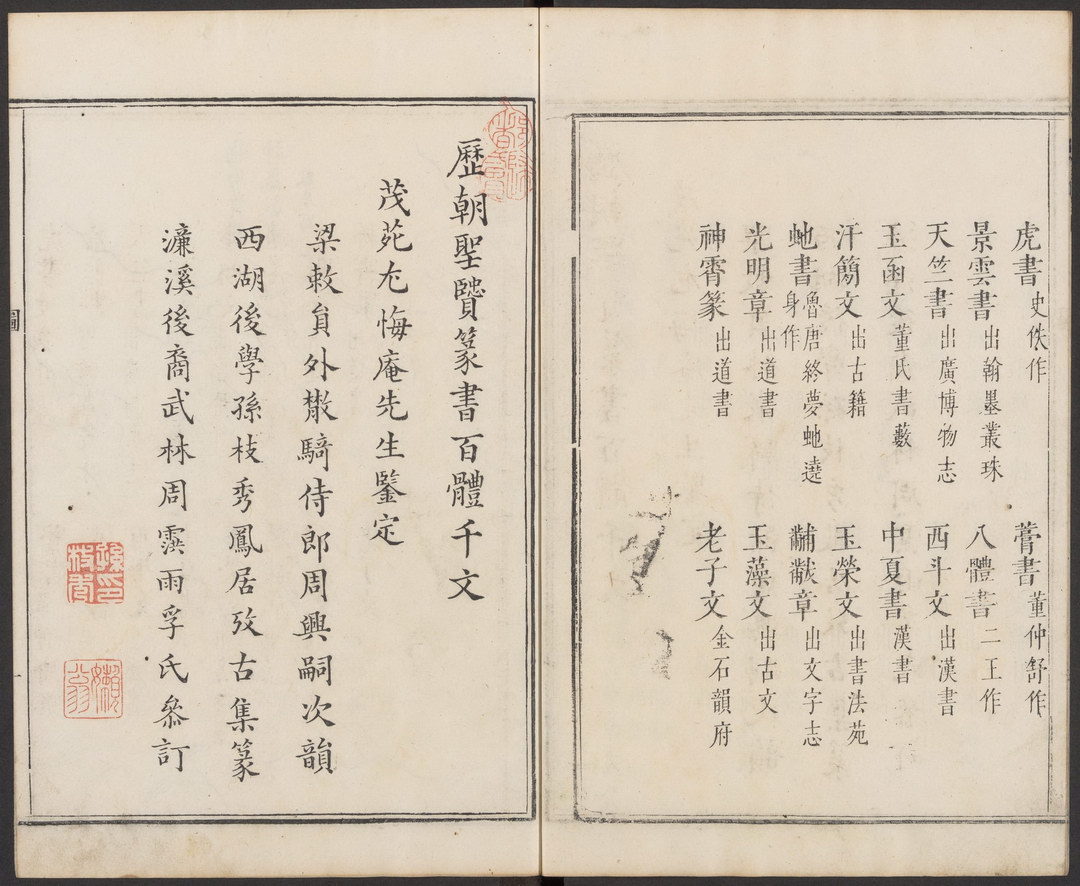 虎書 史佚作 薺書 董仲舒作
景雲書 出翰墨叢珠 八體書 二王作
天竺書 出廣博物志 西斗文 出漢書
玉函文 董氏書藪 中夏書 漢書
汗簡文 出古籍 玉榮文 出書法苑
虵書 魯唐終夢虵遶身作 黼黻章 出文字志
光明章 出道書 玉藻文 出古文
神霄篆 出道書 老子文 金石韻府
歷朝聖賢篆書百體千文
茂苑尤悔庵先生鑒定
梁敕員外散騎侍郎周興嗣次韻
西湖後學孫枝秀鳳居攷古集篆
濂溪後裔武林周霟雨孚氏叅訂
圖
孫枝秀印